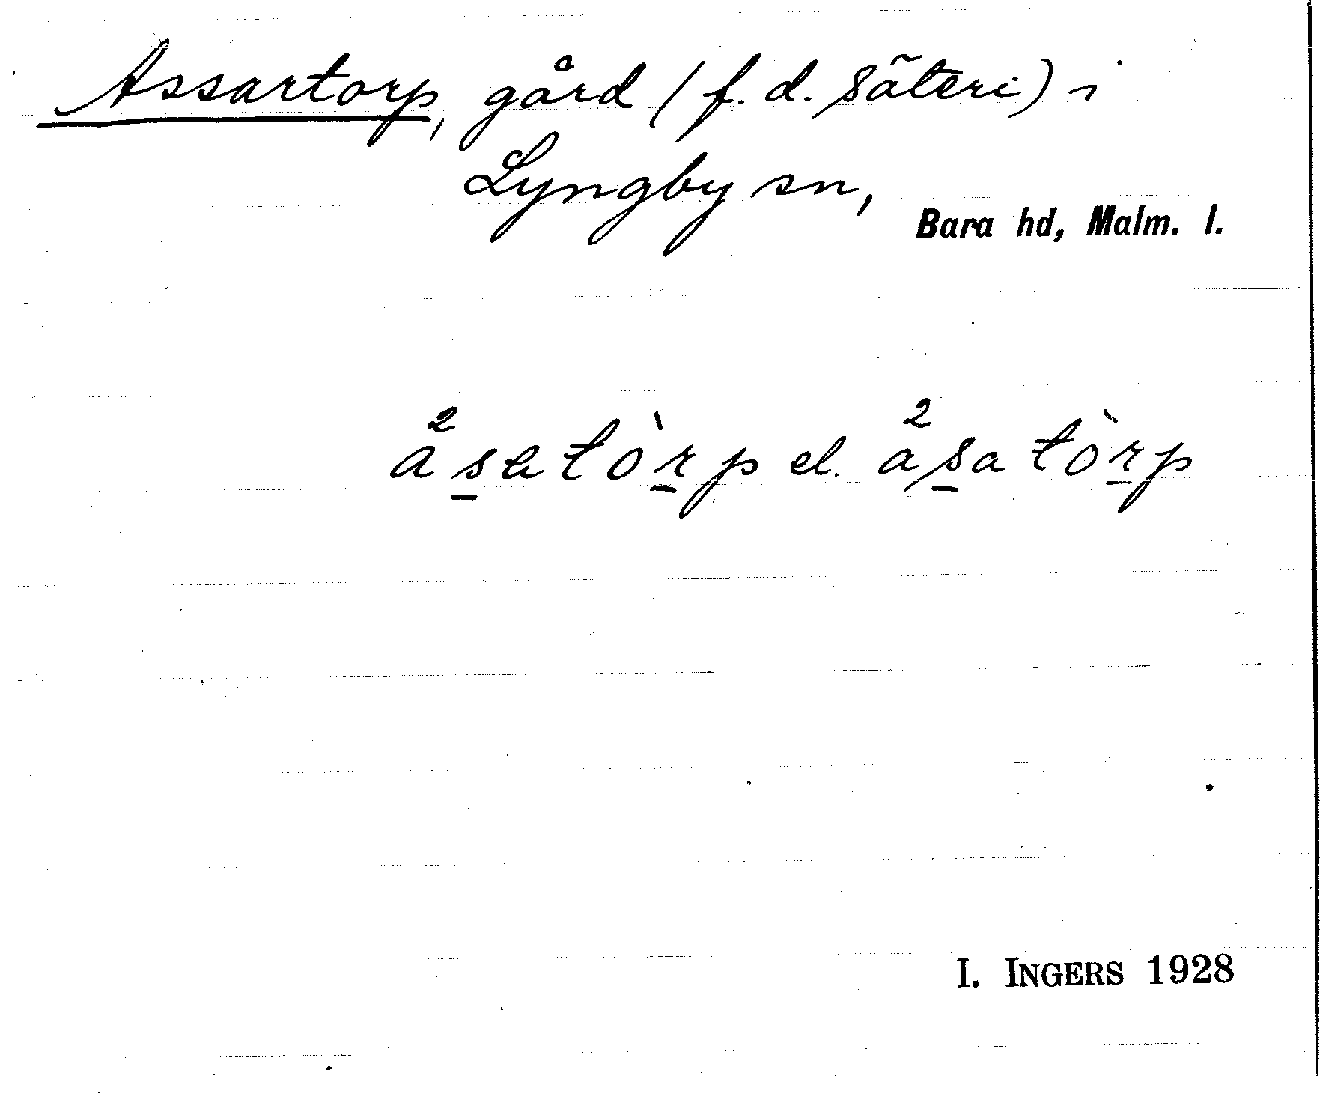 Assartorp, gård (f. d. säteri) i
Lyngby sn,
Bara hd, Malm. l.
a²s̲atòr̲p el. a²s̲atòr̲p
I. INGERS 1928